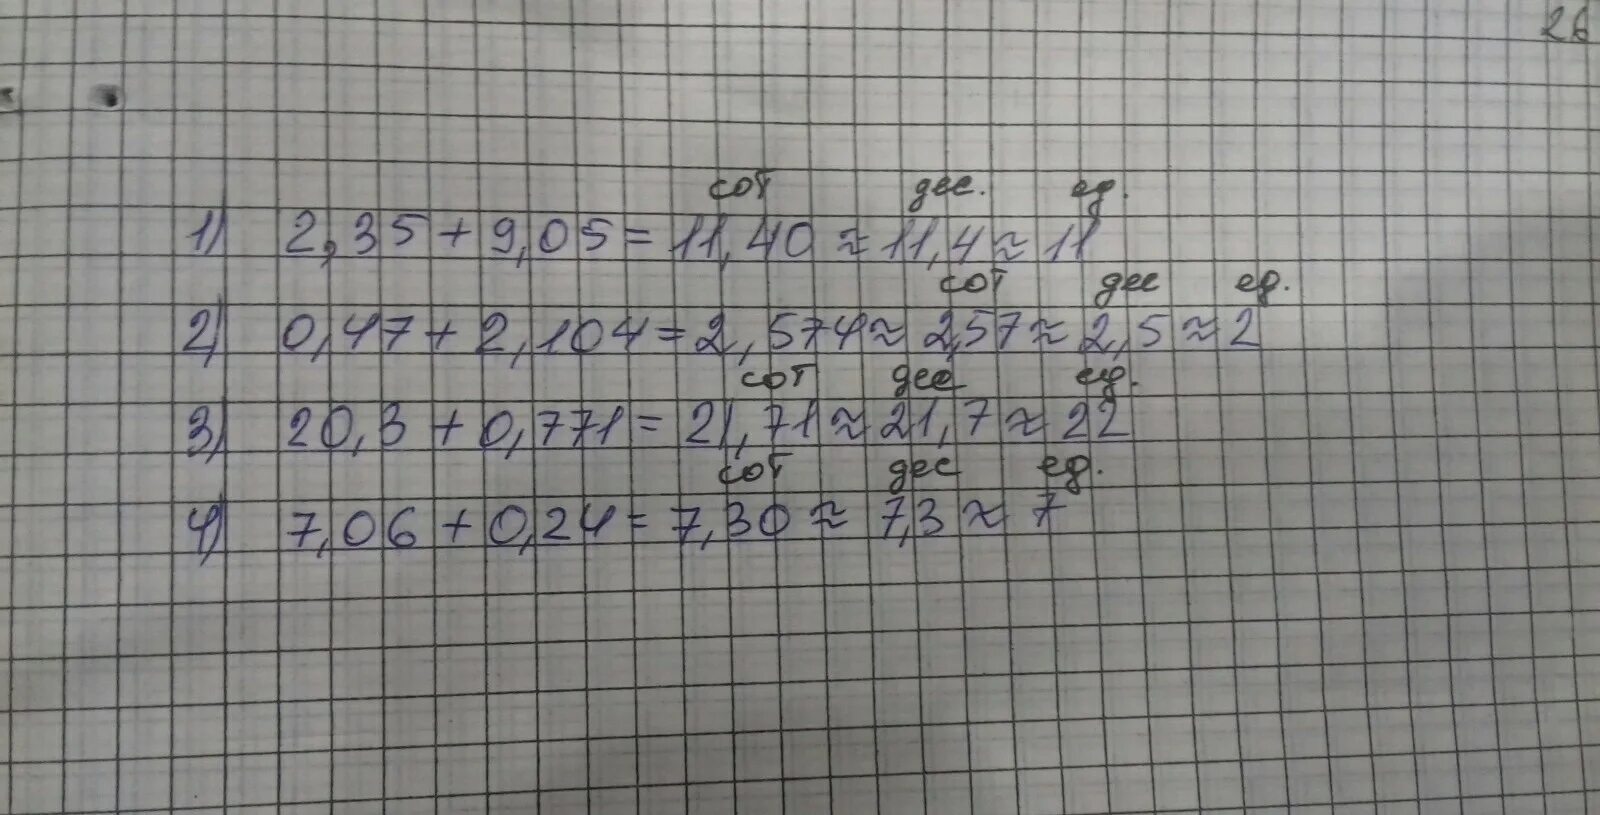 26
сот дес. ед.
1) 2,35 + 9,05 = 11,40 ≈ 11,4 ≈ 11
сот дес ед.
2) 0,47 + 2,104 = 2,574 ≈ 2,57 ≈ 2,5 ≈ 2
сот дес ед.
3) 20,3 + 0,771 = 21,71 ≈ 21,7 ≈ 22
сот дес ед.
4) 7,06 + 0,24 = 7,30 ≈ 7,3 ≈ 7